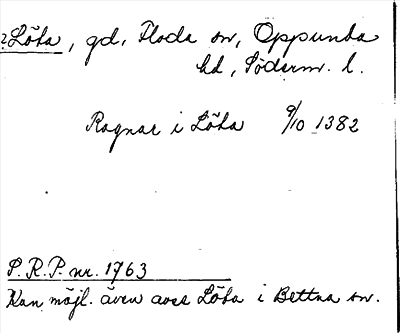 ? Löta, gd, Floda sn, Oppunda
hd, Söderm. l.
Ragnar i Löta 9/10 1382
S. R. P. nr. 1763
Kan möjl. även avse Löta i Bettna sn.